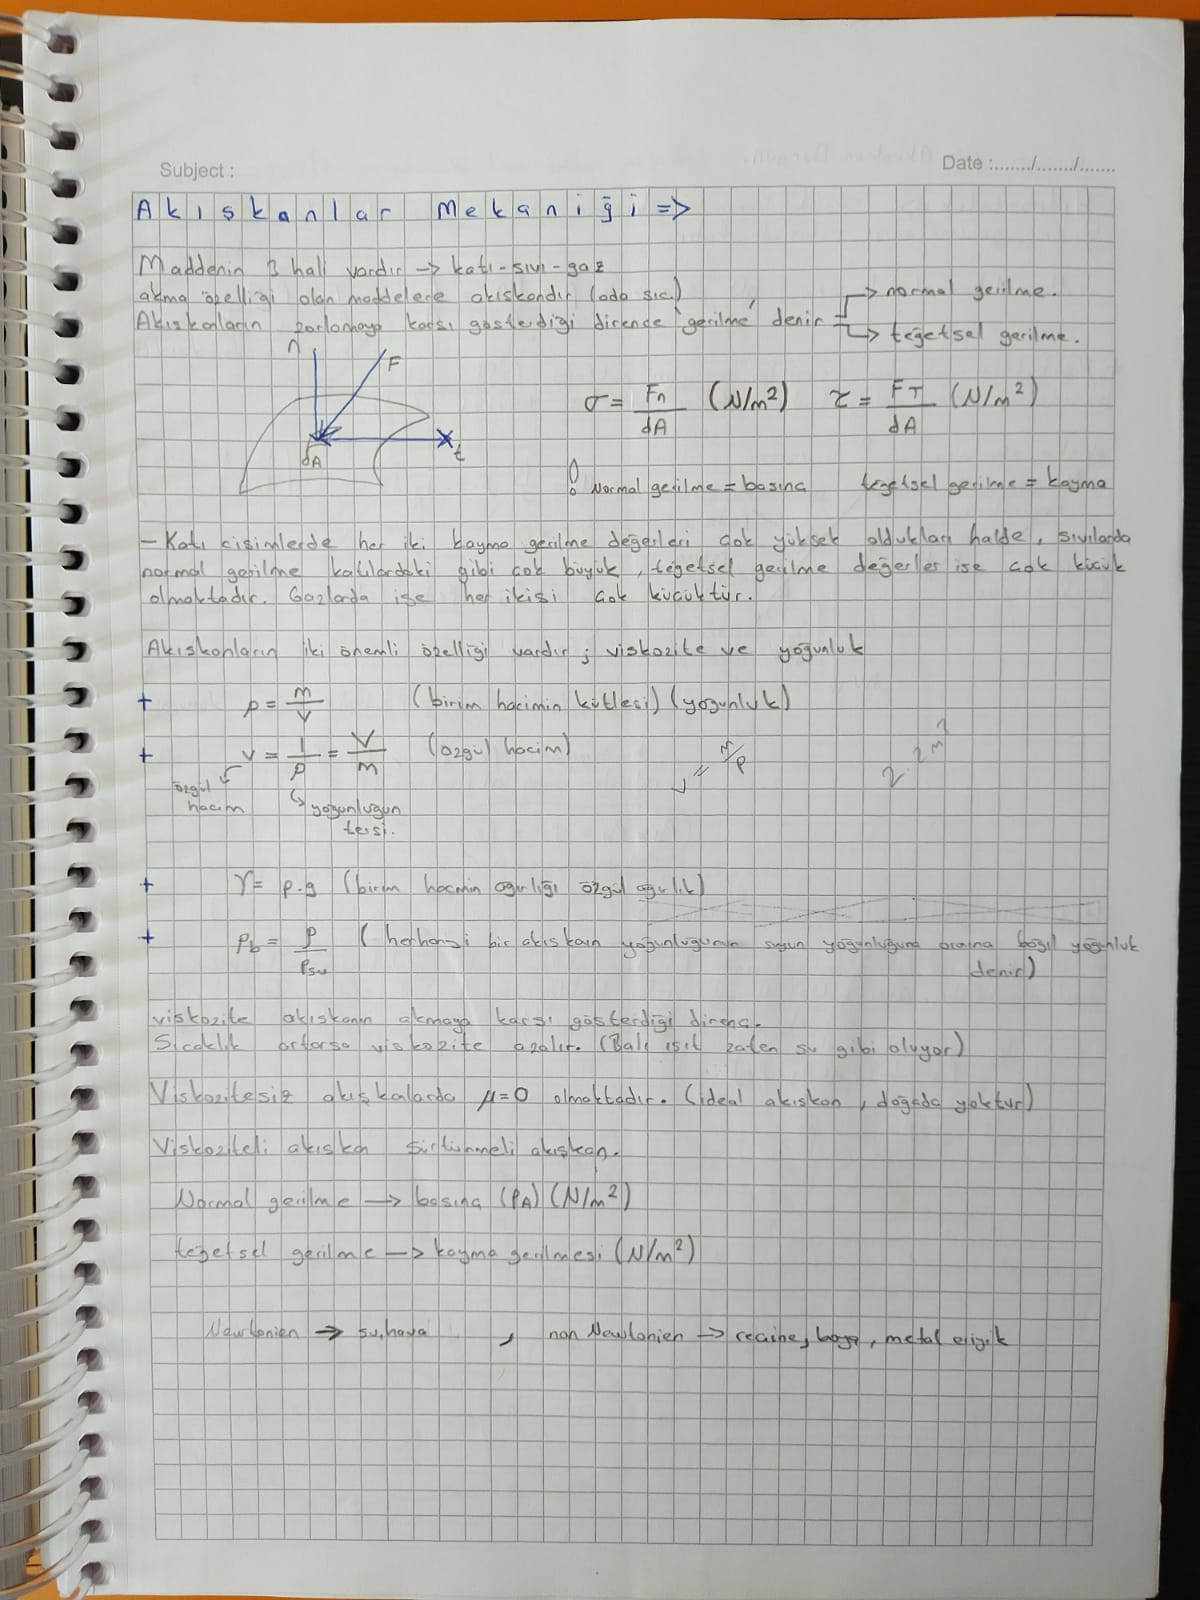 Subject :
Date :......./......./.......
Akışkanlar Mekaniği =>
Maddenin 3 hali vardır → katı-sıvı-gaz
akma özelliği olan maddelere akışkandır (oda sıc.)
→ normal gerilme.
Akışkanların zorlamaya karşı gösterdiği dirence 'gerilme' denir
→ teğetsel gerilme.
n
F
dA
t
σ = Fn/dA (N/m²) τ = FT/dA (N/m²)
! Normal gerilme = basınç teğetsel gerilme = kayma
- Katı cisimlerde her iki kayma gerilme değerleri çok yüksek oldukları halde, sıvılarda
normal gerilme katılardaki gibi çok büyük, teğetsel gerilme değerles ise çok küçük
olmaktadır. Gazlarda ise her ikisi çok küçüktür.
Akışkanların iki önemli özelliği vardır; viskozite ve yoğunluk
+ ρ = m/V (birim hacimin kütlesi) (yoğunluk)
+ v = 1/ρ = V/m (özgül hacim)
özgül hacim
↳ yoğunluğun
tersi.
+ γ = ρ.g (birim hacmin ağırlığı özgül ağırlık)
+ ρb = ρ/ρsu (herhangi bir akışkanın yoğunluğunun suyun yoğunluğuna oranına bağıl yoğunluk
denir)
viskozite akışkanın akmaya karşı gösterdiği direnç.
Sıcaklık artarsa viskozite azalır. (Balı ısıt zaten su gibi oluyor)
Viskozitesiz akışkanlarda μ=0 olmaktadır. (ideal akışkan, doğada yoktur)
Viskoziteli akışkan sürtünmeli akışkan.
Normal gerilme → basınç (PA) (N/m²)
teğetsel gerilme → kayma gerilmesi (N/m²)
Newtonien → su, hava , non Newtonien → reçine, boya, metal eriyik